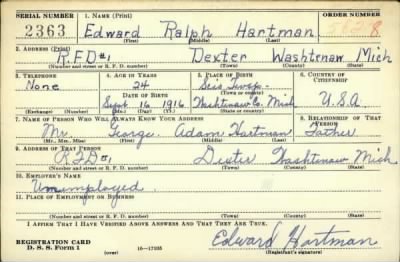 SERIAL NUMBER 1. NAME (Print) ORDER NUMBER
2363 Edward Ralph Hartman
(First) (Middle) (Last)
2. ADDRESS (Print)
R.F.D#1 Dexter Washtenaw Mich
(Number and street or R. F. D. number) (Town) (County) (State)
3. TELEPHONE 4. AGE IN YEARS 5. PLACE OF BIRTH 6. COUNTRY OF CITIZENSHIP
None 24 Twsp.
DATE OF BIRTH (Town or county)
Sept. 16 1916 Washtenaw Co. Mich U.S.A.
(Exchange) (Number) (Mo.) (Day) (Yr.) (State or country)
7. NAME OF PERSON WHO WILL ALWAYS KNOW YOUR ADDRESS 8. RELATIONSHIP OF THAT PERSON
Mr. George Adam Hartman Father
(Mr., Mrs., Miss) (First) (Middle) (Last)
9. ADDRESS OF THAT PERSON
RFD#1 Dexter Washtenaw Mich
(Number and street or R. F. D. number) (Town) (County) (State)
10. EMPLOYER'S NAME
Unemployed.
11. PLACE OF EMPLOYMENT OR BUSINESS
(Number and street or R. F. D. number) (Town) (County) (State)
I AFFIRM THAT I HAVE VERIFIED ABOVE ANSWERS AND THAT THEY ARE TRUE.
REGISTRATION CARD
D. S. S. Form 1 (over) 16—17105 Edward Hartman
(Registrant's signature)